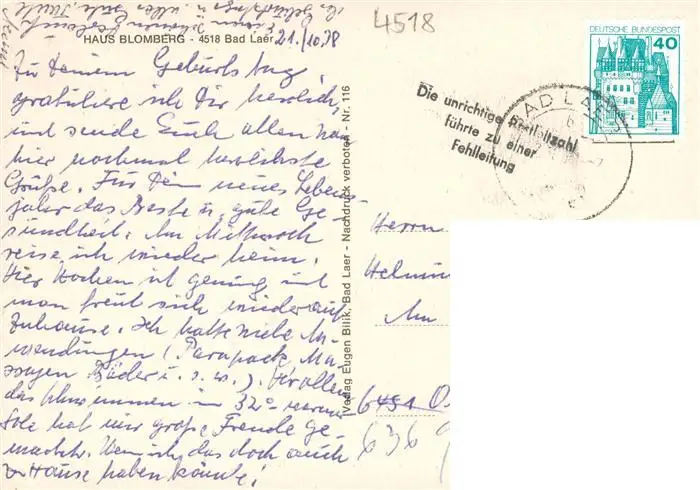 4518
HAUS BLOMBERG - 4518 Bad Laer
21./10.78
Zu Deinem Geburtstag
gratuliere ich Dir herzlich,
und sende Euch allen von
hier nochmal herzlichste
Grüße. Für Dein neues Lebens-
jahr das Beste u. gute Ge-
sundheit. Am Mittwoch
reise ich wieder heim.
Vier Wochen ist genung, und
man freut sich wieder auf
Zuhause. Ich hatte viele An-
wendungen (Parapack, Ma-
ssagen Bäder u. s. w.).
das Schwimmen im 32°-warmer
Sole hat mir große Freude ge-
macht. Wenn ich das doch auch
zu Hause haben könnte!
Verlag Eugen Bilik, Bad Laer - Nachdruck verboten - Nr. 116
Die unrichtige Postleitzahl
führte zu einer
Fehlleitung
BAD LAER
DEUTSCHE BUNDESPOST
40
Herrn
Helmu
Am
6451
636